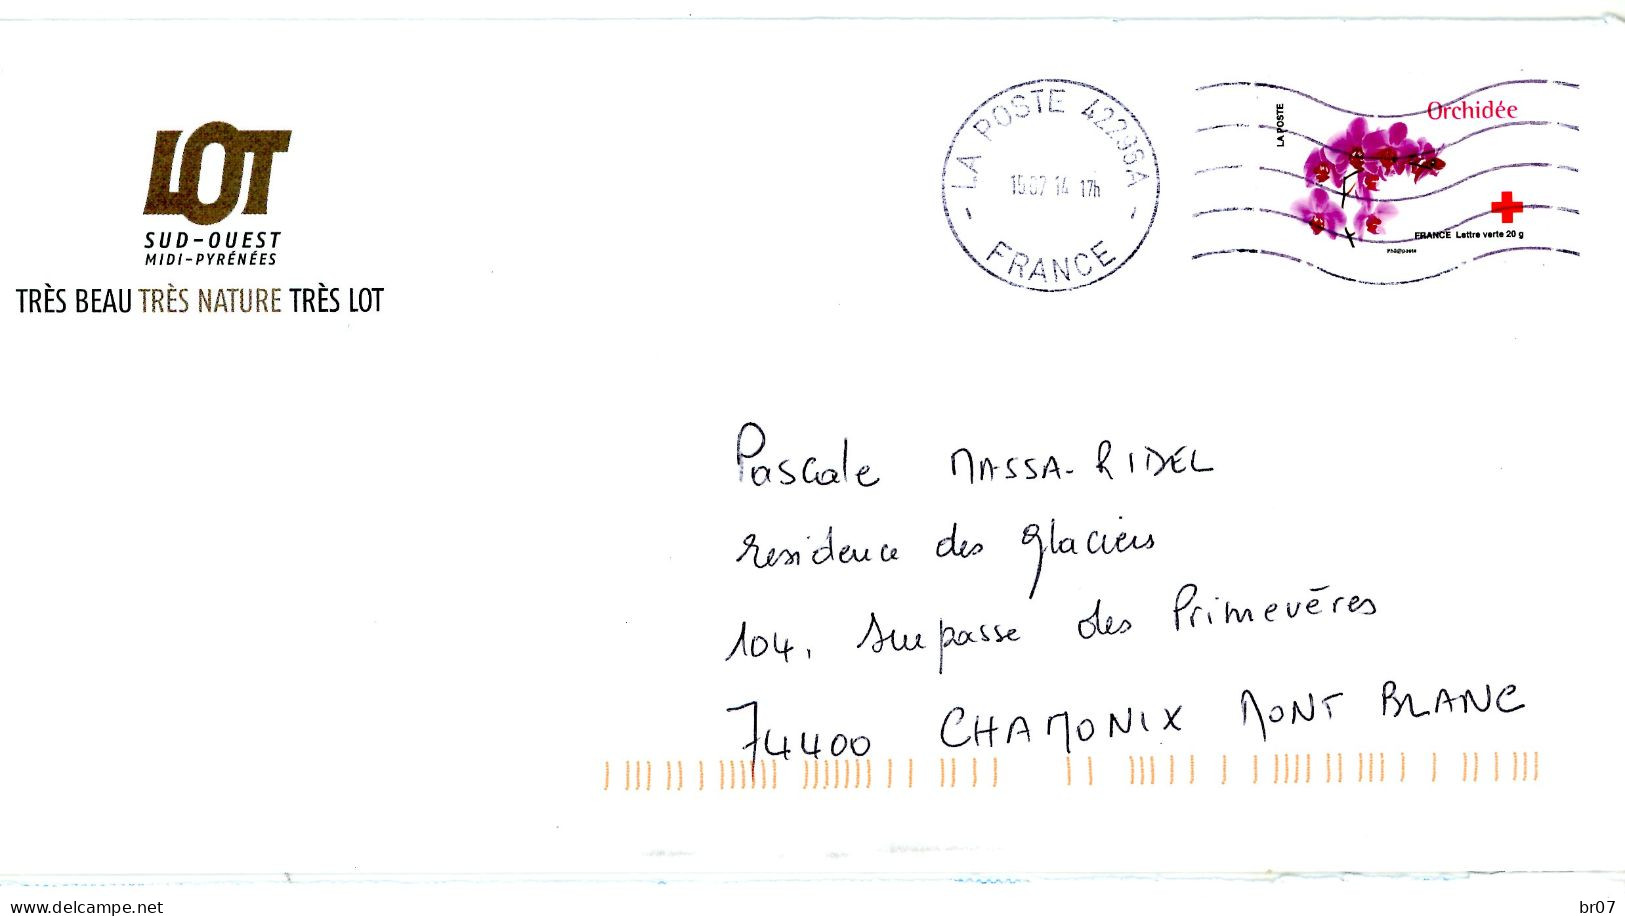 LOT
SUD-OUEST
MIDI-PYRÉNÉES
TRÈS BEAU TRÈS NATURE TRÈS LOT
LA POSTE 42296A
15 07 14 17h
- FRANCE -
LA POSTE
Orchidée
FRANCE Lettre verte 20 g
Pascale MASSA-RIDEL
residence des glaciers
104, Impasse des Primevères
74400 CHAMONIX MONT BLANC
www.delcampe.net
br07